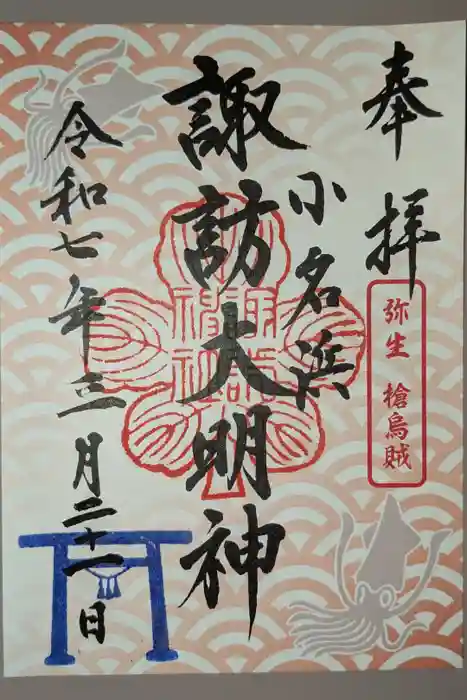 奉拝
弥生 槍烏賊
小名浜
諏訪大明神
諏訪神社
令和七年三月二十一日